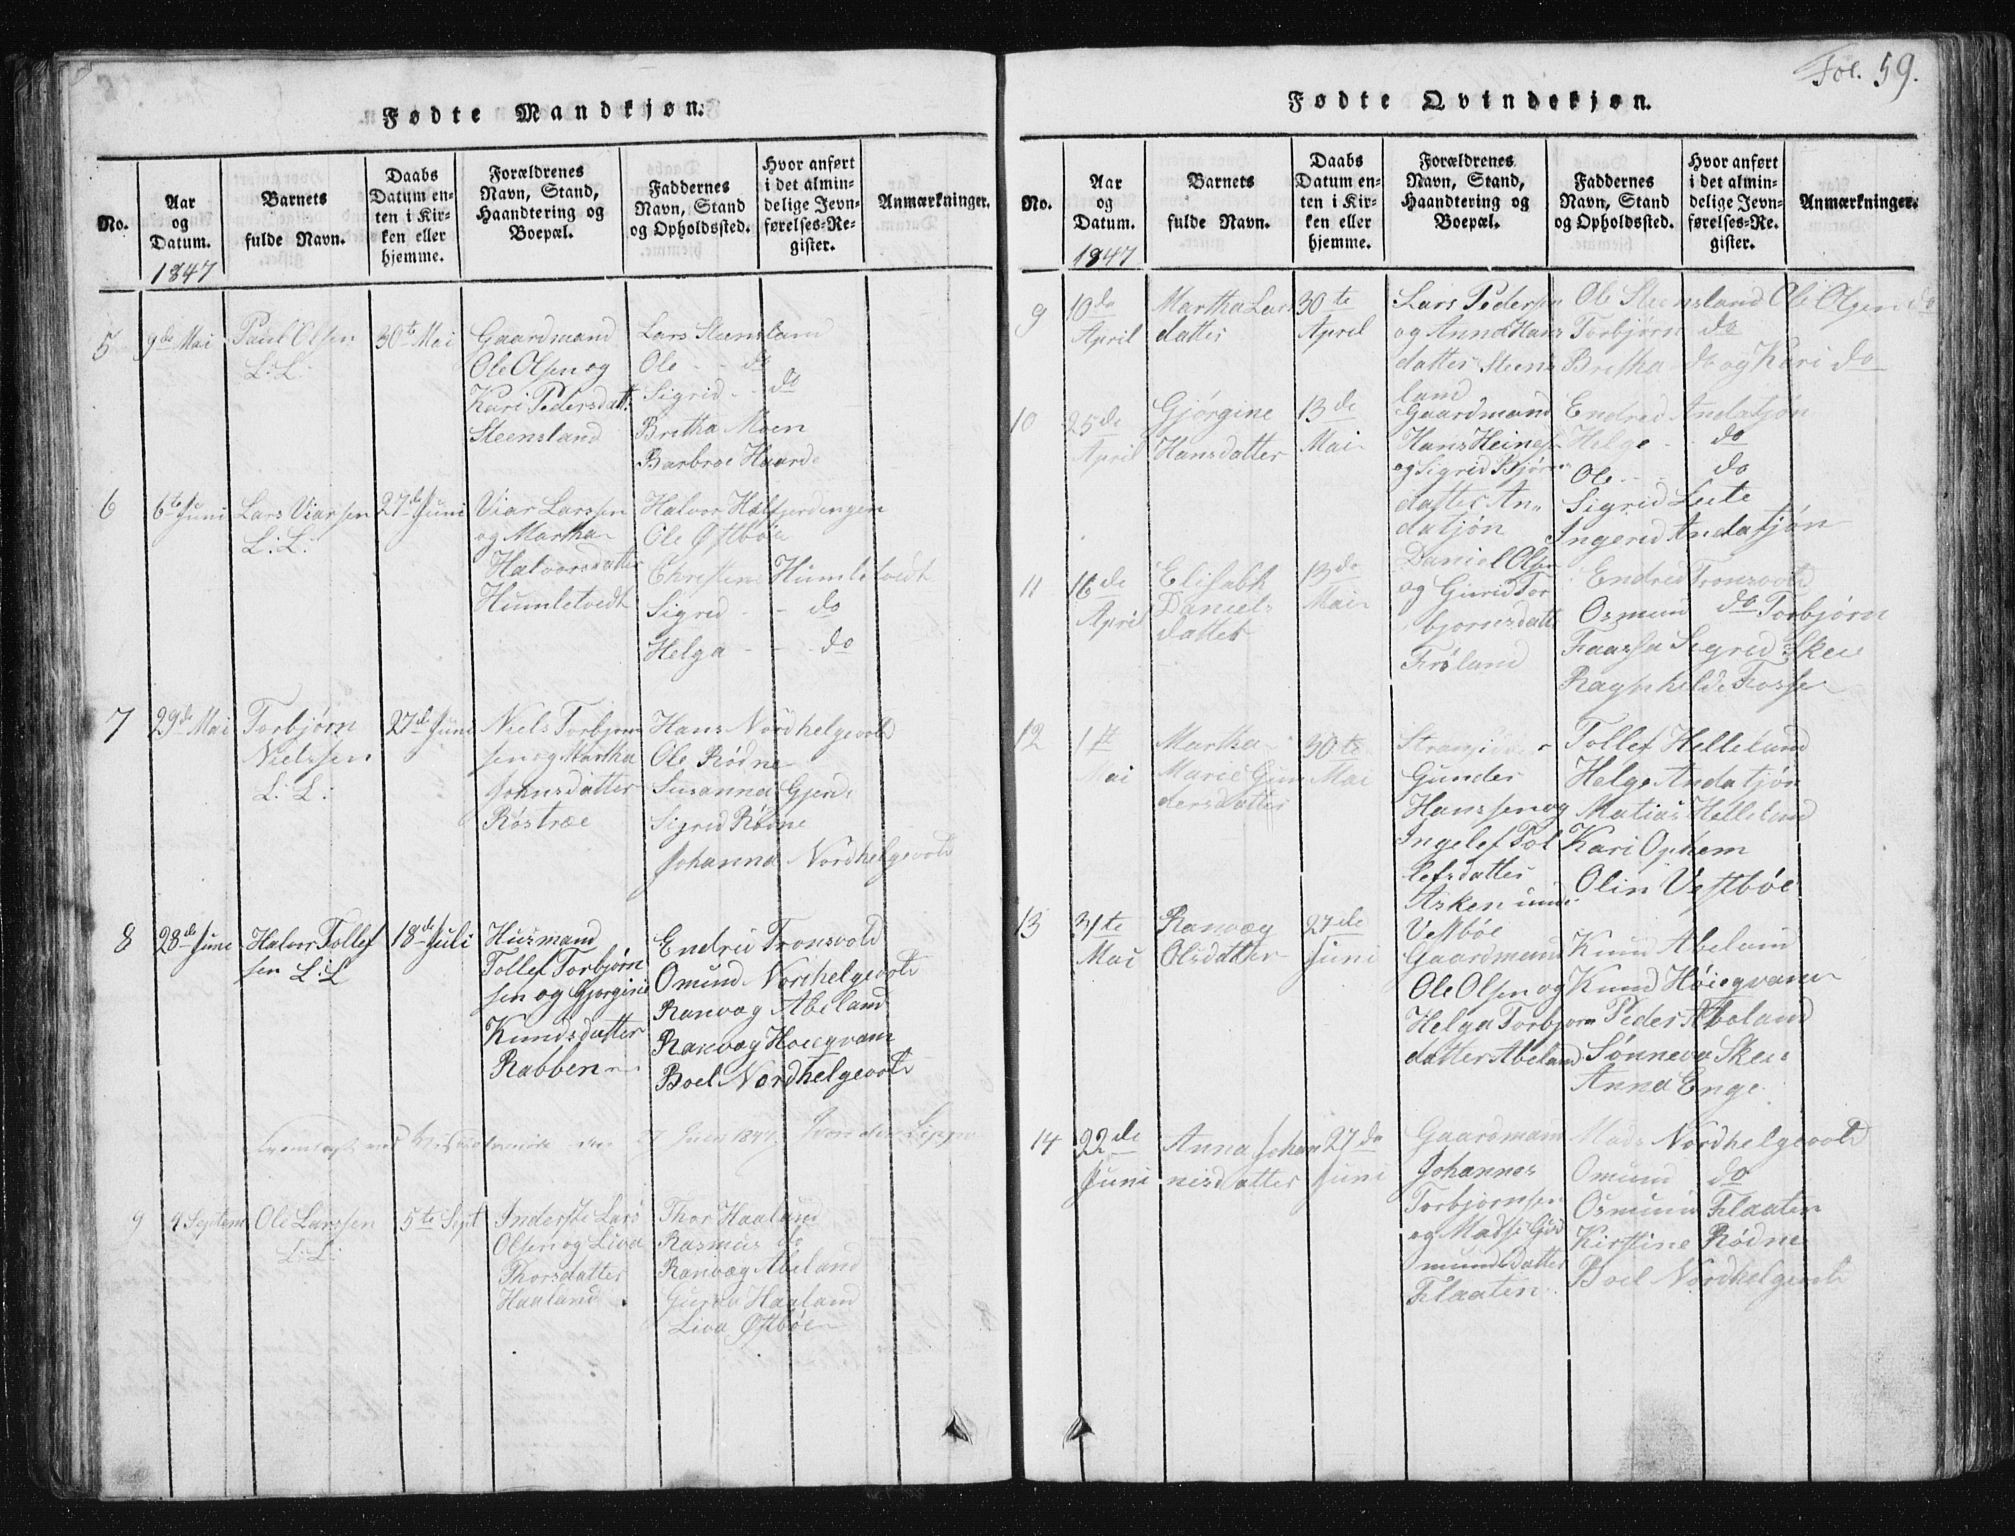 Fødte Mandkjøn.
No.
Aar og Datum.
Barnets fulde Navn.
Daabs Datum enten i Kirken eller hjemme.
Forældrenes Navn, Stand, Haandtering og Boepæl.
Faddernes Navn, Stand og Opholdssted.
Hvor anført i det almindelige Jevnførelses-Register.
Anmærkninger.
1847
5
9de Mai
Paul Olsen
L: L:
30te Mai
Gaardmand
Ole Olsen og
Kari Pedersdatt:
Steensland
Lars Steensland
Ole - - do
Sigrid - - do
Bretha Moen
Barbroe Haard
6
6te Juni
Lars Viarsen
L: L:
27de Juni
Viar Larssen
og Martha
Halvorsdatter
Humletvedt
Halvor Halfjerdingen
Ole Østbøe
Christine Humletvedt
Sigrid - - do
Helga - - do
7
29de Mai
Torbjørn
Nielssen
L: L:
27de Juni
Niels Torbjørn
sen og Martha
Johnsdatter
Rostræe
Hans Nordhelgevold
Ole Rødne
Susanna Gjerde
Sigrid Rødne
Johanna Nordhelgevold
8
28de Juni
Halvor Tollef
sen L: L
18de Juli
Husmand
Tollef Torbjørn
sen og Gjorgine
Knudsdatter
Rabben
Endrid Tronsvold
Omund Nordhelgevold
Ranvæg Abeland
Ranvæg Hoiegvam
Boel Nordhelgevold
1847.
9
4 Septem
Ole Larssen
L: L:
5te Sept
Inderste Lars
Olsen og Liva
Thorsdatter
Haaland
Thor Haaland
Rasmus do
Ranvæg Abeland
Guroe Haaland
Liva Østbøe
Fol. 59.
Fødte Qvindekjøn.
No.
Aar og Datum.
Barnets fulde Navn.
Daabs Datum enten i Kirken eller hjemme.
Forældrenes Navn, Stand, Haandtering og Boepæl.
Faddernes Navn, Stand og Opholdssted.
Hvor anført i det almindelige Jevnførelses-Register.
Anmærkninger.
1847
9
10de
April
Martha Lars
datter
30te
April
Lars Pedersen
og Anna Hans
datter Steens
land
Ole Steensland Ole Olsen do
Torbjørn do
Bretha do og Kari do
10
25de
April
Gjørgine
Hansdatter
13de
Mai
Gaardmand
Hans Heines
og Sigrid Bjørn
datter An
datjøn
Endred Andatjøn
Helge - do
Ole - - do
Sigrid Leite
Ingerid Andatjøn
11
16de
April
Elisabt
Daniels
datter
13de
Mai
Daniel Olsen
og Gurid Tor
bjornsdatt
Frøland
Endred Tronsvold
Osmund do Torbjørn
Faassa Segrid Skei
Ragnhelde Fosse
12
1st
Mai
Martha
Marie Gun
dersdatter
30te
Mai
Strandsidder
Gunder
Hanssen og
Ingelef Tol
lefsdatter
Asken unde
Vestbøe
Tollef Helleland
Helge Andatjøn
Matias Helleland
Kari Ophem
Olin Vestbøe
13
31te
Mai
Ranvæg
Olsdatter
27de
Juni
Gaardmand
Ole Olsen og
Helga Torbjørn
datter Abeland
Knud Abeland
Knud Høiegvam
Peder Abeland
Sønneva Skei
Anna Enge
14
22de
Juni
Anna Johan
nesdatter
27de
Juni
Gaardmand
Johannes
Torbjørnsen
og Madsi Gud
mundsdatter
Flaaten
Mads Nordhelgevold
Omund do
Osmund Flaaten
Kirstine Rødne
Boel Nordhelgevold